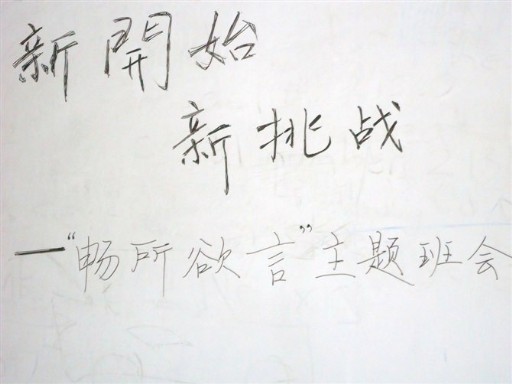 新開始
新挑战
—“畅所欲言”主题班会